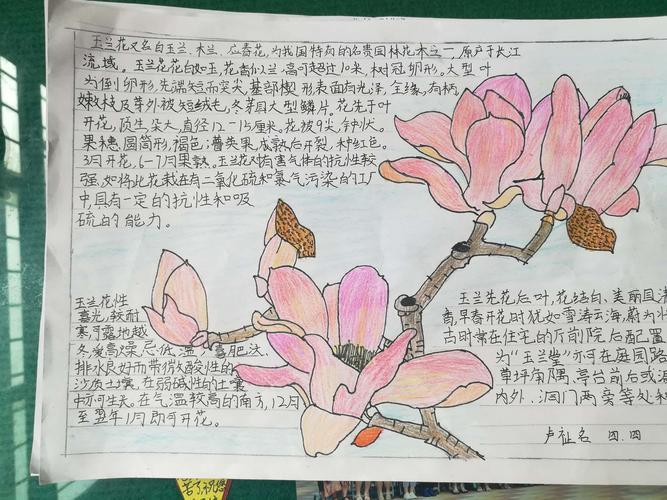 玉兰花又名白玉兰、木兰、应春花,为我国特有的名贵园林花木之一,原产于长江
流域。玉兰花花白如玉,花香似兰,高可超过10米,树冠卵形。大型叶
为倒卵形,先端短而突尖,基部楔形表面有光泽,全缘,有柄,
嫩枝及芽外被短绒毛,冬芽具大型鳞片。花先于叶
开花,顶生朵大,直径12-15厘米。花被9尖,钟状。
果穗圆筒形,褐色;蓇葖果,成熟后开裂,种红色。
3月开花,6-7月果熟。玉兰花对有害气体的抗性较
强,如将此花栽在有二氧化硫和氯气污染的工厂
中,具有一定的抗性和吸
硫的能力。
玉兰花性
喜光,较耐
寒,可露地越
冬。爱高燥,忌低温,喜肥沃、
排水良好而带微酸性的
沙质土壤,在弱碱性的土壤
中亦可生长。在气温较高的南方,12月
至翌年1月即可开花。
玉兰先花后叶,花洁白、美丽且清
香,早春开花时犹如雪涛云海,蔚为壮
古时常在住宅的厅前院后配置
为“玉兰堂”亦可在庭园路
草坪角隅、亭台前后或
内外、洞门两旁等处种
卢祉名 四.四